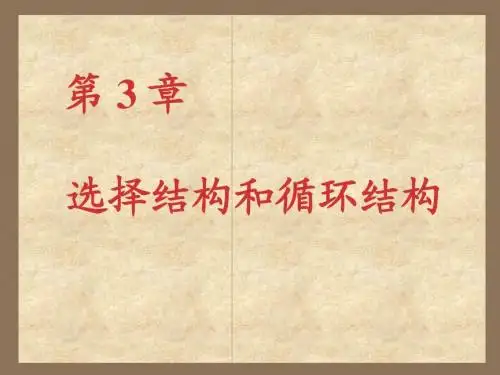 第 3 章
选择结构和循环结构